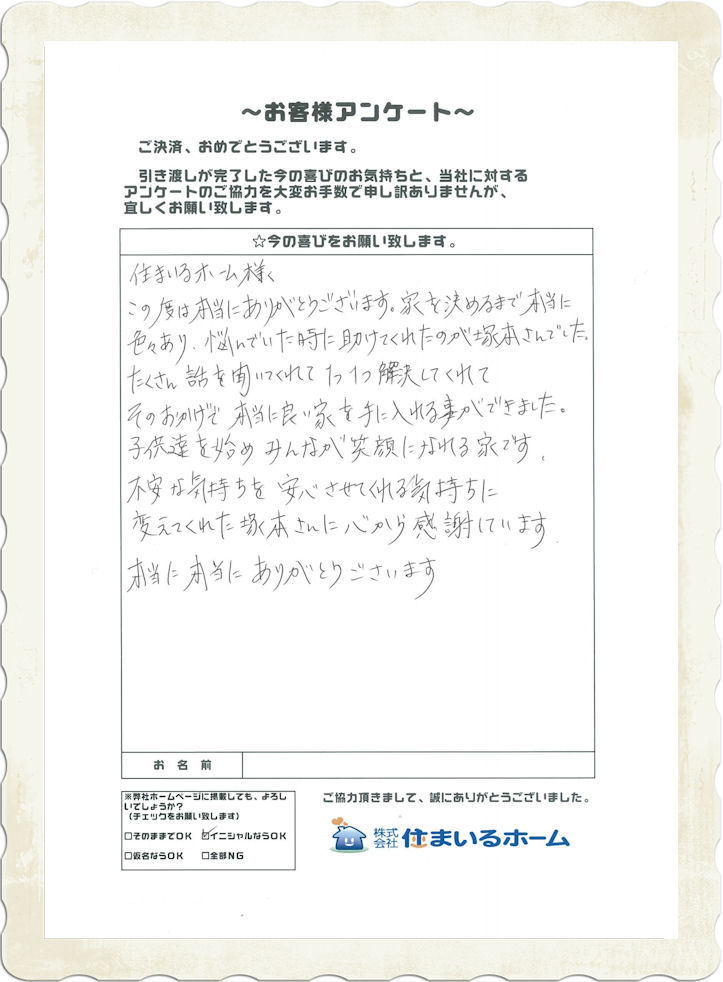 ～お客様アンケート～
ご決済、おめでとうございます。
引き渡しが完了した今の喜びのお気持ちと、当社に対する
アンケートのご協力を大変お手数で申し訳ありませんが、
宜しくお願い致します。
☆今の喜びをお願い致します。
住まいるホーム様へ
この度は本当にありがとうございます。家を決めるまで本当に
色々あり、悩んでいた時に助けてくれたのが塚本さんでした。
たくさん話を聞いてくれて1つ1つ解決してくれて
そのおかげで本当に良い家を手に入れる事ができました。
子供達を始めみんなが笑顔になれる家です、
不安な気持ちを安心させてくれる気持ちに
変えてくれた塚本さんに心から感謝しています
本当に本当にありがとうございます
お名前
※弊社ホームページに掲載しても、よろし
いでしょうか？
（チェックをお願い致します）
□そのままでOK ☑イニシャルならOK
□仮名ならOK □全部NG
ご協力頂きまして、誠にありがとうございました。
株式会社 住まいるホーム